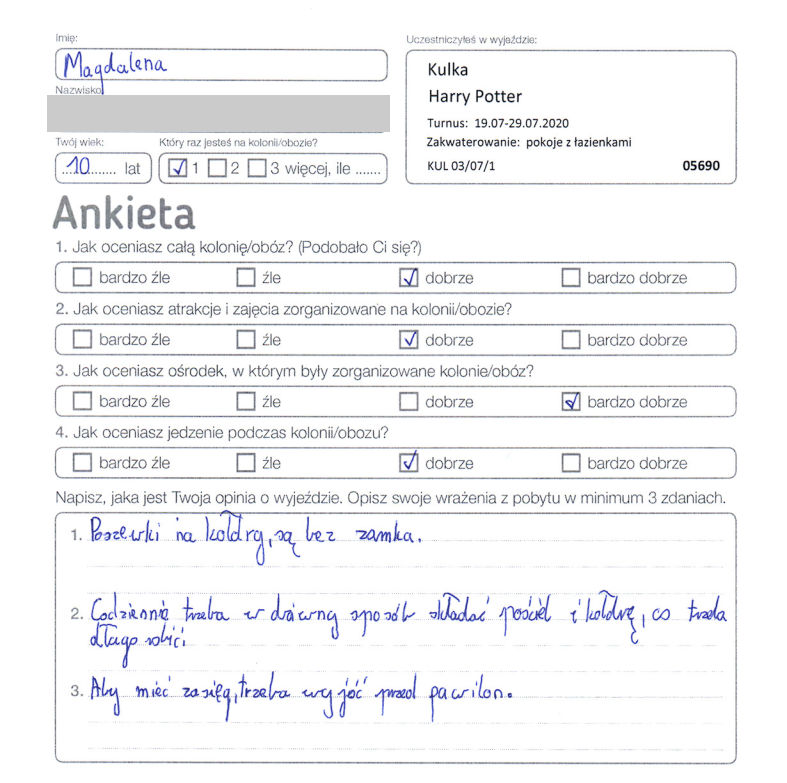 Imię:
Magdalena
Nazwisko
Twój wiek:
10 lat
Który raz jesteś na kolonii/obozie?
1 2 3 więcej, ile .......
Uczestniczyłeś w wyjeździe:
Kulka
Harry Potter
Turnus: 19.07-29.07.2020
Zakwaterowanie: pokoje z łazienkami
KUL 03/07/1 05690
Ankieta
1. Jak oceniasz całą kolonię/obóz? (Podobało Ci się?)
bardzo źle źle dobrze bardzo dobrze
2. Jak oceniasz atrakcje i zajęcia zorganizowane na kolonii/obozie?
bardzo źle źle dobrze bardzo dobrze
3. Jak oceniasz ośrodek, w którym były zorganizowane kolonie/obóz?
bardzo źle źle dobrze bardzo dobrze
4. Jak oceniasz jedzenie podczas kolonii/obozu?
bardzo źle źle dobrze bardzo dobrze
Napisz, jaka jest Twoja opinia o wyjeździe. Opisz swoje wrażenia z pobytu w minimum 3 zdaniach.
1. Poszewki na kołdry, są bez zamka.
2. Codziennie trzeba w dziwny sposób składać pościel i kołdrę, co trzeba
długo robić
3. Aby mieć zasięg, trzeba wyjść przed pawilon.